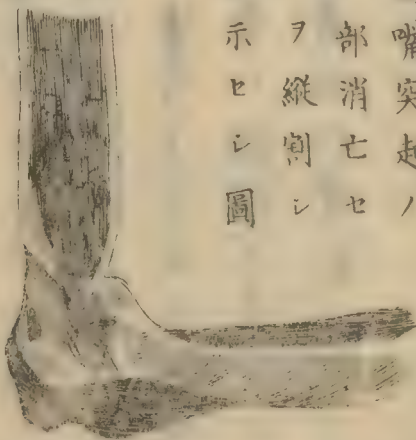 嘴突起ノ
部消亡セ
ヲ縦割シ
示セシ圖